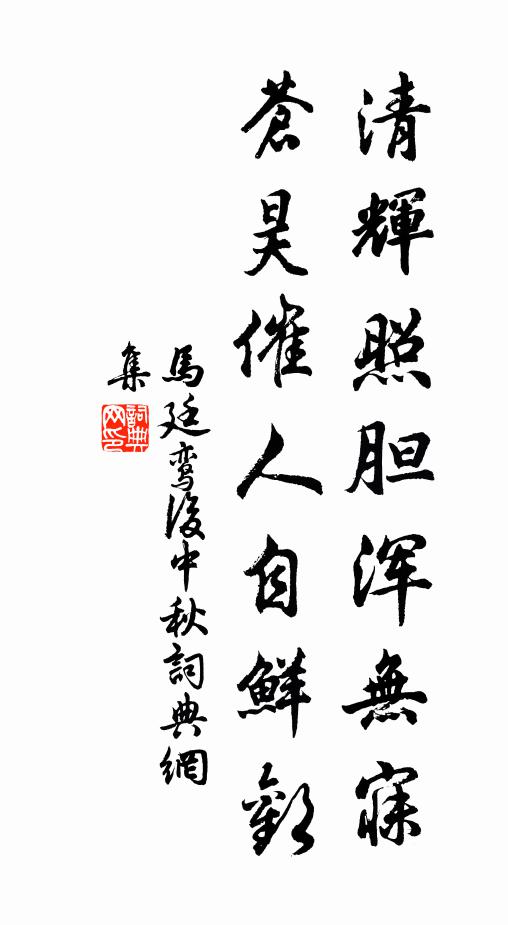 清輝照胆浑無寐
蒼昊催人自鮮歡
馬廷鸾後中秋詞典網
集
詞典
网印